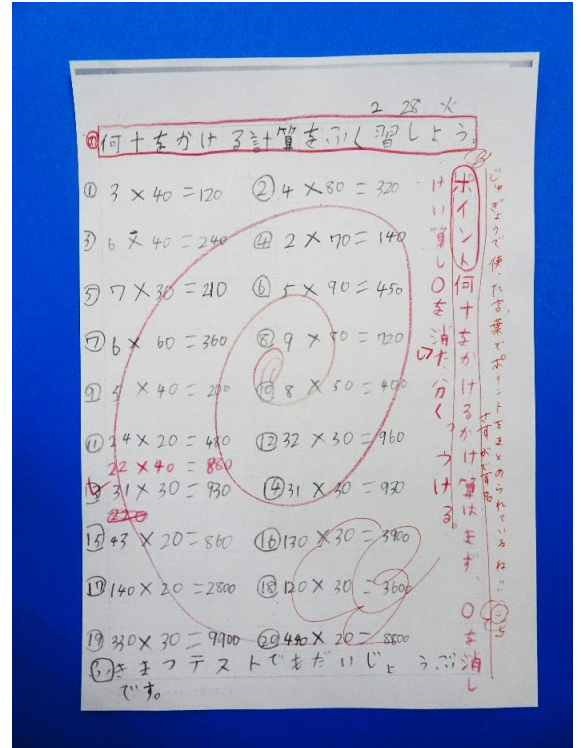 2 28 火
め 何十をかける計算をふく習しよう。
① 3 × 40 = 120 ② 4 × 80 = 320
③ 6 × 40 = 240 ④ 2 × 70 = 140
⑤ 7 × 30 = 210 ⑥ 5 × 90 = 450
⑦ 6 × 60 = 360 ⑧ 9 × 80 = 720
⑨ 5 × 40 = 200 ⑩ 8 × 50 = 400
⑪ 24 × 20 = 480 ⑫ 32 × 30 = 960
22 × 40 = 880
⑬ 31 × 30 = 930 ⑭ 31 × 30 = 930
220
⑮ 43 × 20 = 860 ⑯ 130 × 30 = 3900
⑰ 140 × 20 = 2800 ⑱ 120 × 30 = 3600
⑲ 330 × 30 = 9900 ⑳ 440 × 20 = 8800
きまつテストでもだいじょうぶ
です。
じゅぎょうで使った言葉でポイントをまとめられているね
さすがです
ポイント 何十をかけるかけ算はまず 0を消し
けい算し0を消した分く っつける。